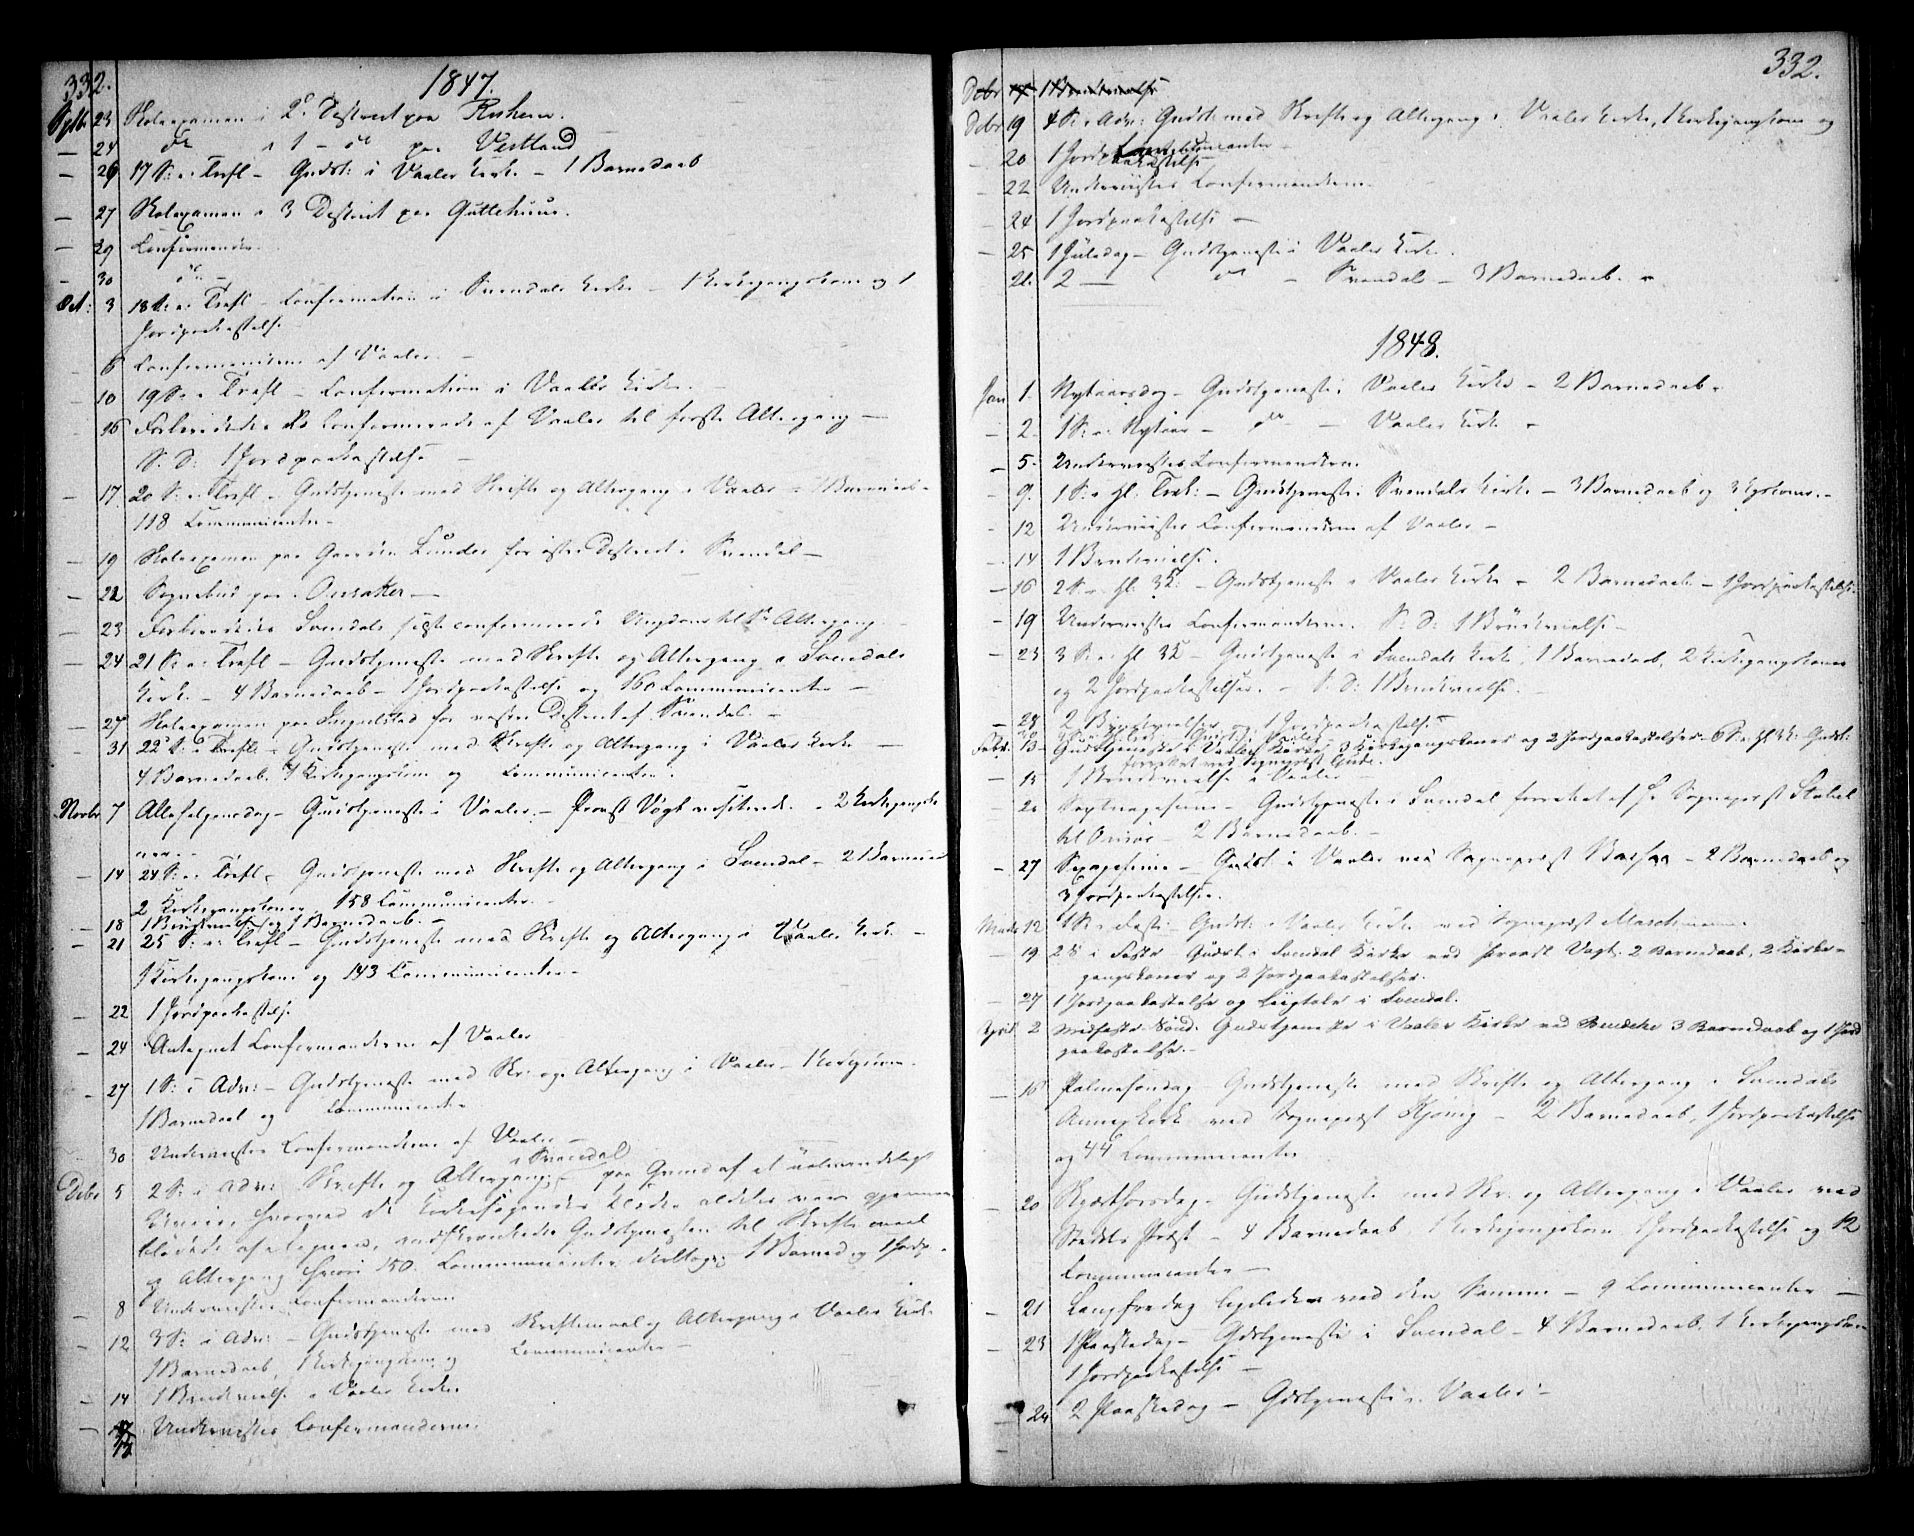 332.
1847.
Septbr 23 Skoleexamen i 2d District paa Rishem.
— 24 do i 1 — do paa Vestland
— 26 17 S: e: Trefl — Gudst: i Vaaler Kirke — 1 Barnedaab
— 27 Skoleexamen i 3 District paa Guttehuus.
— 29 Confirmander.
— 30 do —
Oct: 3 18 S: e: Trefl — Confirmation i Svendals Kirke — 1 Kirkegangskone og 1
Jordpaakastelse
6 Confirmanderne af Vaaler. —
— 10 19 S: e: Trefl — Confirmation i Vaaler Kirke. —
— 16 Forberedede de Confirmerede af Vaaler til første Altergang —
S: D: 1 Jordpaakastelse —
— 17. 20 S: e: Trefl — Gudstjeneste med Skrifte og Altergang i Vaaler — 1 Barnedaab —
118 Communicanter —
— 19 Skoleexamen paa Gaarden Lunder for østre District i Svendal —
— 22 Sognebud paa Onsaker —
— 23 Forberedede Svendals sidste confirmerede Ungdom til 1ste Altergang. —
— 24 21 S: e: Trefl — Gudstjeneste med Skrifte og Altergang i Svendals
Kirke — 4 Barnedaab — 1 Jordpaakastelse og 160 Communicanter —
— 27 Skoleexamen paa Ingulstad for vestre District af Svendal. —
— 31 22 S: e: Trefl — Gudstjeneste med Skrifte og Altergang i Vaaler Kirke —
4 Barnedaab. 4 Kirkegangskoner og Communicanter.
Novbr 7 Allehelgensdag — Gudstjeneste i Vaaler — Provst Vogt visiterede. — 2 Kirkegangsko
ner. —
— 14 24 S: e: Trefl — Gudstjeneste med Skrifte og Altergang i Svendal — 2 Barnedaab
2 Kirkegangskoner, 158 Communicanter. —
— 18 1 Brudevielse og 1 Barnedaab. —
— 21 25 S: e: Trefl — Gudstjeneste med Skrifte og Altergang i Vaaler Kirke —
1 Kirkegangskone og 143 Communicanter —
— 22 1 Jordpaakastelse
— 24 Antegnet Confirmanderne af Vaaler
— 27 1 S: i Adv: — Gudstjeneste med Skr. og Altergang i Vaaler — 1 Kirkgkone.
1 Barnedaab og Communicanter
30 Underviste Confirmanderne af Vaaler —
Debr 5 2 S: i Adv: Skrifte og Altergang i Svendal — paa Grund af et ualmindeligt
Uveir, hvorved de Kirkesøgendes Klæder aldeles vare gjennem
blødede af Regnen, indskrænkedes Gudstjenesten til Skriftemaal
og Altergang hvori 150 Communicanter deeltoge — 1 Barned og 1 Jordp.
— 8 Underviste Confirmanderne
— 12 3 S: i Adv: — Gudstjeneste med Skriftemaal og Altergang i Vaaler Kirke
1 Barnedaab, 1 Kirkegangskone og Communicanter —
— 14 1 Brudevielse i Vaaler Kirke
— 15 Underviste Confirmanderne.
332.
Debr 17 1 Brudevielse
Debr 19 4 S: i Adv: Gudst: med Skrifte og Altergang i Vaaler Kirke, 1 Kirkegangskone og
Communicanter —
— 20 1 Jordpaakastelse
— 22 Underviste Confirmanderne.
— 24 1 Jordpaakastelse —
— 25 1 Juledag — Gudstjeneste i Vaaler Kirke.
26. 2 — do — Svendal — 3 Barnedaab. —
1848.
Jan 1. Nytaarsdag — Gudstjeneste i Vaaler Kirke — 2 Barnedaab —
— 2. 1 S: e: Nytaar — do — Vaaler Kirke —
— 5. Underviste Confirmanderne.
— 9. 1 S: e. Hl. Trek: — Gudstjeneste i Svendals Kirke — 3 Barnedaab og 3 Kgskoner. —
— 12 Underviste Confirmanderne af Vaaler —
— 14 1 Brudevielse.
— 16 2 S: e. hl. 3K: — Gudstjeneste i Vaaler Kirke — 2 Barnedaab — 1 Jordpaakastelse.
— 19 Underviste Confirmanderne. S: D: 1 Brudevielse —
— 23 3 S: e. hl 3K — Gudstjeneste i Svendals Kirke, 1 Barnedaab, 2 Kirkegangskoner
og 2 Jordpaakastelser. — S. D: 1 Brudevielse. —
— 28 2 Brudevielser og 1 Jordpaakastelse —
Febr: 13 Gudstjeneste i Vaaler Kirke, 3 Kirkegangskoner og 2 Jordpaakastelser 6 S: e. hl 3K: Gudst:
forrettet ved Sognepræst Gude.
— 15 1 Brudevielse i Vaaler —
— 20 Septuagesima — Gudstjeneste i Svendal forrettet af Hr Sognepræst Stabel
til Onsøe — 2 Barnedaab. —
— 27 Sexagesima — Gudst i Vaaler ved Sognepræst Bassøe — 2 Barnedaab og
3 Jordpaakastelse.
Marts 12 1 S: i Faste: Gudst: i Vaaler Kirke ved Sognepræst Maschmann
— 19 2 S i Faste Gudst: i Svendal Kirke ved Provst Vogt. 2 Barnedaab, 2 Kirke-
gangskoner og 2 Jordpaakastelser.
— 27 1 Jordpaakastelse og Liigtale i Svendal.
April 2 Midfaste Sønd. Gudstjeneste i Vaaler Kirke ved Bendeke 3 Barnedaab og 1 Jord
paakastelse. —
— 16 Palmesøndag — Gudstjeneste med Skrifte og Altergang i Svendals
Annexkirk ved Sognepræst Kjønig — 2 Barnedaab, 1 Jordpaakastelse
og 44 Communicanter
— 20 Skjærthorsdag — Gudstjeneste med Skr. og Altergang i Vaaler ved
Stedets Præst — 4 Barnedaab, 1 Kirkegangskone, 1 Jordpaakastelse og 12
Communicanter —
— 21 Langfredag ligeledes ved den Samme — 9 Communicanter —
— 23 1 Paaskedag — Gdstjeneste i Svendal — 4 Barnedaab, 1 Kirkegangskone
1 Jordpaakastelse —
— 24 2 Paaskedag — Gdstjeneste i Vaaler. —